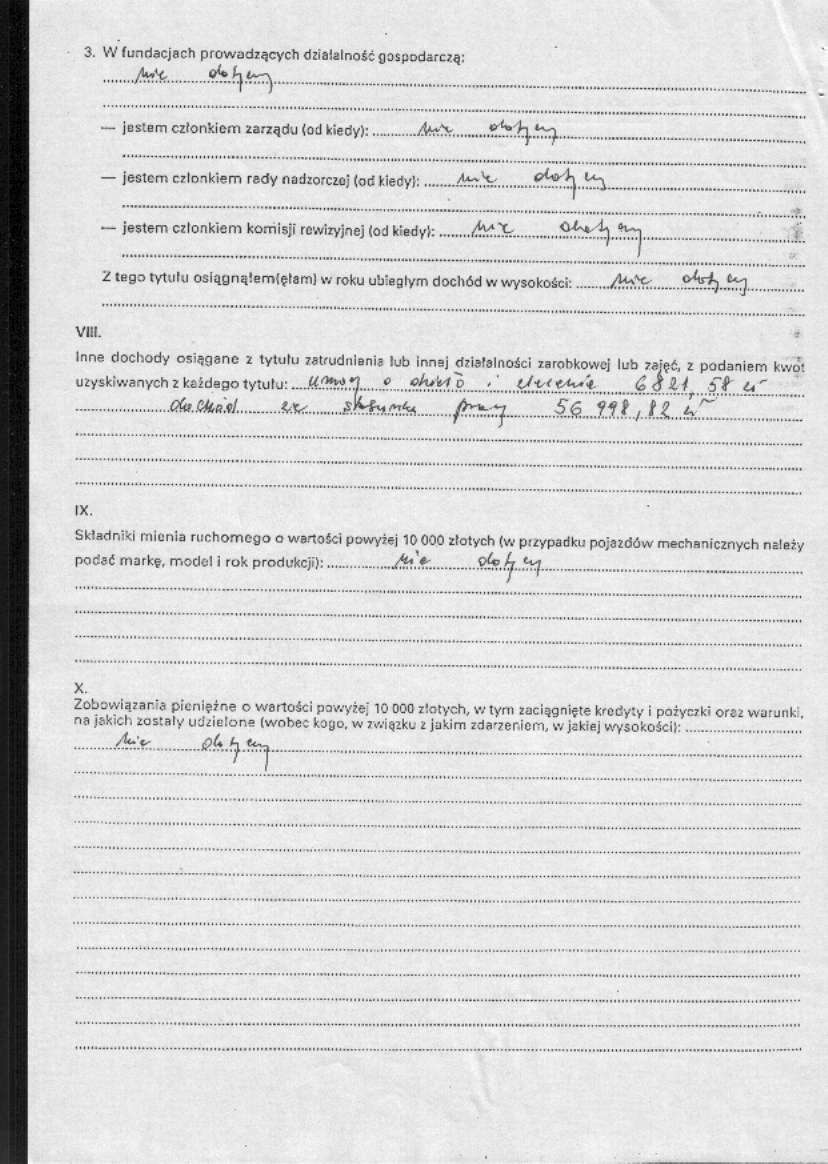 3. W fundacjach prowadzących działalność gospodarczą:
nie dotyczy
— jestem członkiem zarządu (od kiedy): nie dotyczy
— jestem członkiem rady nadzorczej (od kiedy): nie dotyczy
— jestem członkiem komisji rewizyjnej (od kiedy): nie dotyczy
Z tego tytułu osiągnąłem(ęłam) w roku ubiegłym dochód w wysokości: nie dotyczy
VIII.
Inne dochody osiągane z tytułu zatrudnienia lub innej działalności zarobkowej lub zajęć, z podaniem kwot
uzyskiwanych z każdego tytułu: umowy o dzieło i zlecenie 6 821,58 zł
dochód ze stosunku pracy 56 998,82 zł
IX.
Składniki mienia ruchomego o wartości powyżej 10 000 złotych (w przypadku pojazdów mechanicznych należy
podać markę, model i rok produkcji): nie dotyczy
X.
Zobowiązania pieniężne o wartości powyżej 10 000 złotych, w tym zaciągnięte kredyty i pożyczki oraz warunki,
na jakich zostały udzielone (wobec kogo, w związku z jakim zdarzeniem, w jakiej wysokości):
nie dotyczy